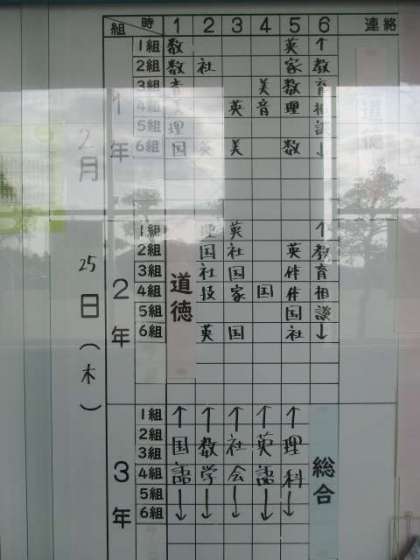 組 時 1 2 3 4 5 6 連絡
2月25日(木)
1年
1組 数 英 ↑
2組 数 社 家 教
3組 美 数 育
4組 英 音 理 相
5組 理 談
6組 国 美 数 ↓
道徳
2年
道徳
1組 英 ↑
2組 国 社 英 教
3組 社 国 体 育
4組 技 家 国 体 相
5組 国 談
6組 英 国 社 ↓
3年
1組 ↑ ↑ ↑ ↑ ↑
2組
3組 国 数 社 英 理
4組 語 学 会 語 科
5組
6組 ↓ ↓ ↓ ↓ ↓
総合